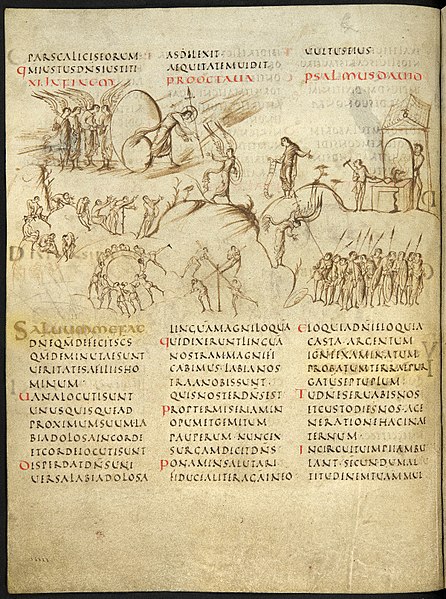 PARSCALICISEORUM
QMIUSTUSDNSIUSTITI
ASDILEXIT
AEQUITATEMUIDIT
UULTUSEIUS
XI INFINEM
PROOCTAUA
PSALMUSDAUID
SALUUMMEFAC
DNEQMDEFECITSCS
QMDEMINUTAESUNT
UERITATESAFILIISHO
MINUM
UANALOCUTISUNT
UNUSQUISQUEAD
PROXIMUMSUUM·LA
BIADOLOSAINCORDE
ETCORDELOCUTISUNT
DISPERDATDNSUNI
UERSALABIADOLOSA
LINGUAMAGNILOQUA
QUIDIXERUNTLINGUA
NOSTRAMMAGNIFI
CABIMUS·LABIANOS
TRAANOBISSUNT·
QUISNOSTERDNSEST
PROPTERMISERIAMIN
OPUMETGEMITUM
PAUPERUM·NUNCEX
SURGAMDICITDNS
PONAMINSALUTARI
FIDUCIALITERAGAINEO·
ELOQUIADNIELOQUIA
CASTA·ARGENTUM
IGNEEXAMINATUM
PROBATUMTERRAEPUR
GATUSEPTUPLUM
TUDNESERUABISNOS
ETCUSTODIESNOS·AGE
NERATIONEHACINAE
TERNUM·
INCIRCUITUIMPIIAMBU
LANT·SECUNDUMAL
TITUDINEMTUAMMUL